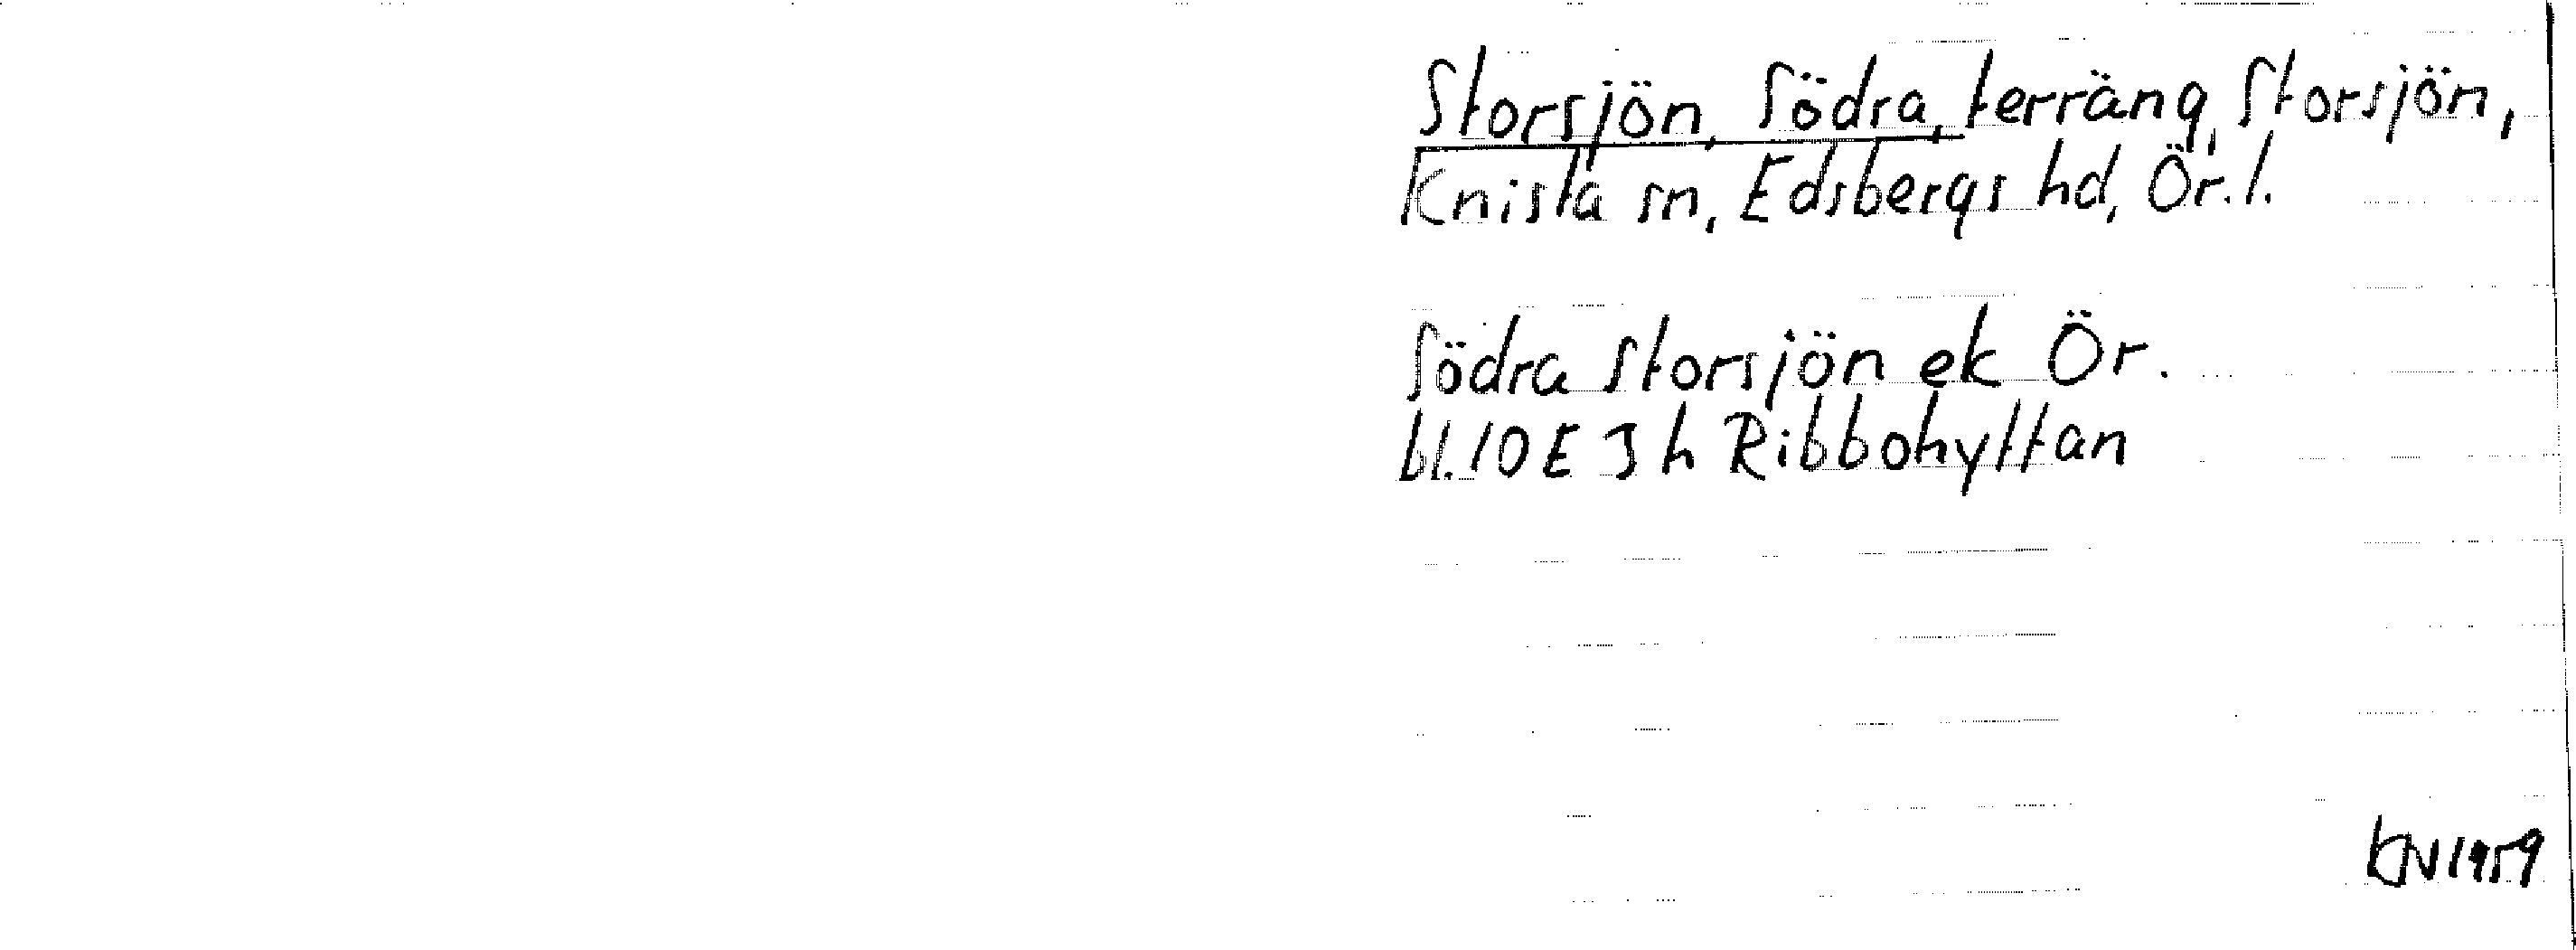 Storsjön, Södra, terräng, Storsjön,
Knista sn, Edsbergs hd, Ör. l.
Södra Storsjön ek Ör.
bl. 10 E 3 h Ribbohyttan
KN 1959